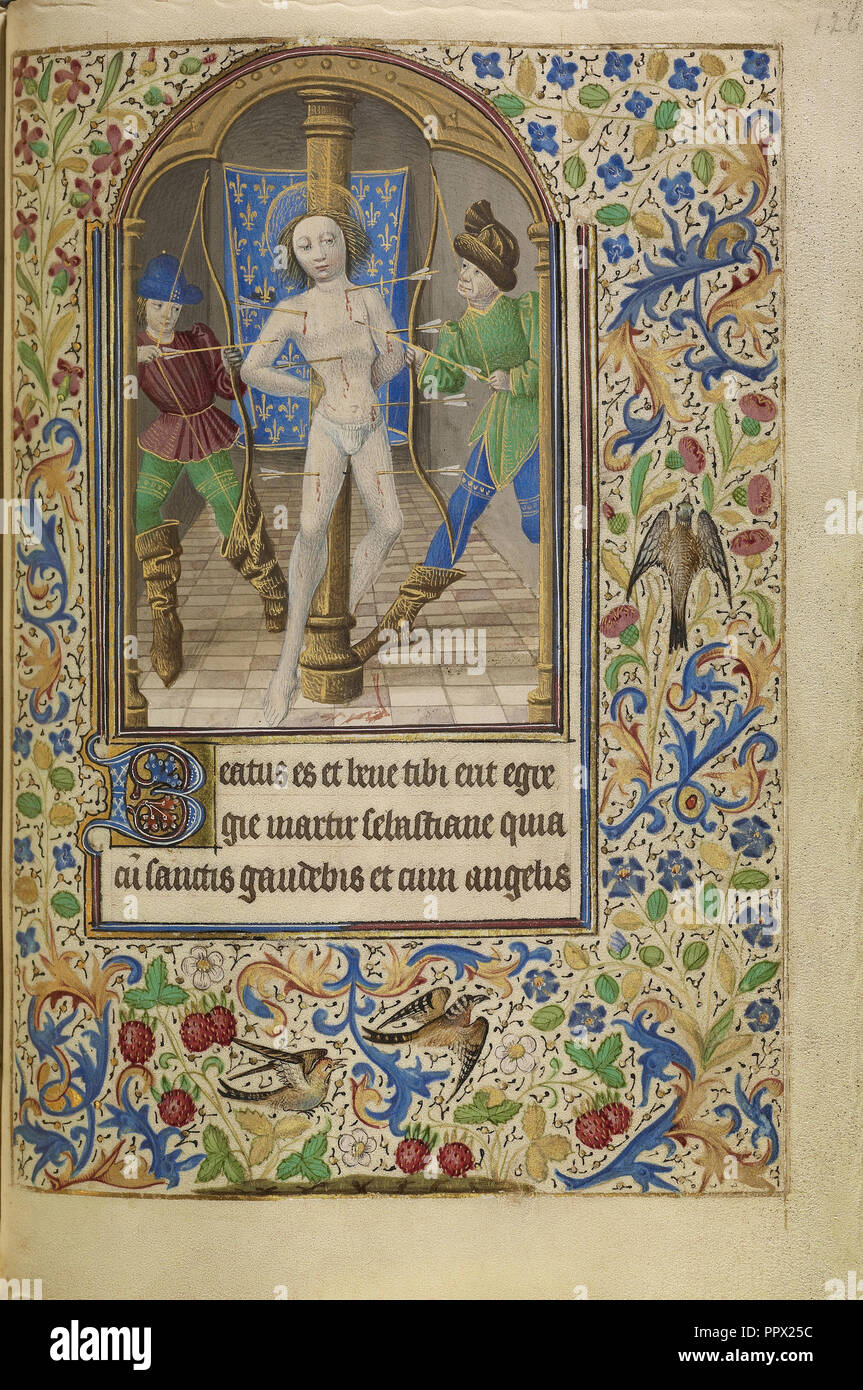 126
Beatus es et bene tibi erit egre
gie martir sebastiane quia
cũ sanctis gaudebis et cum angelis
alamy
Image ID: PPX25C
www.alamy.com